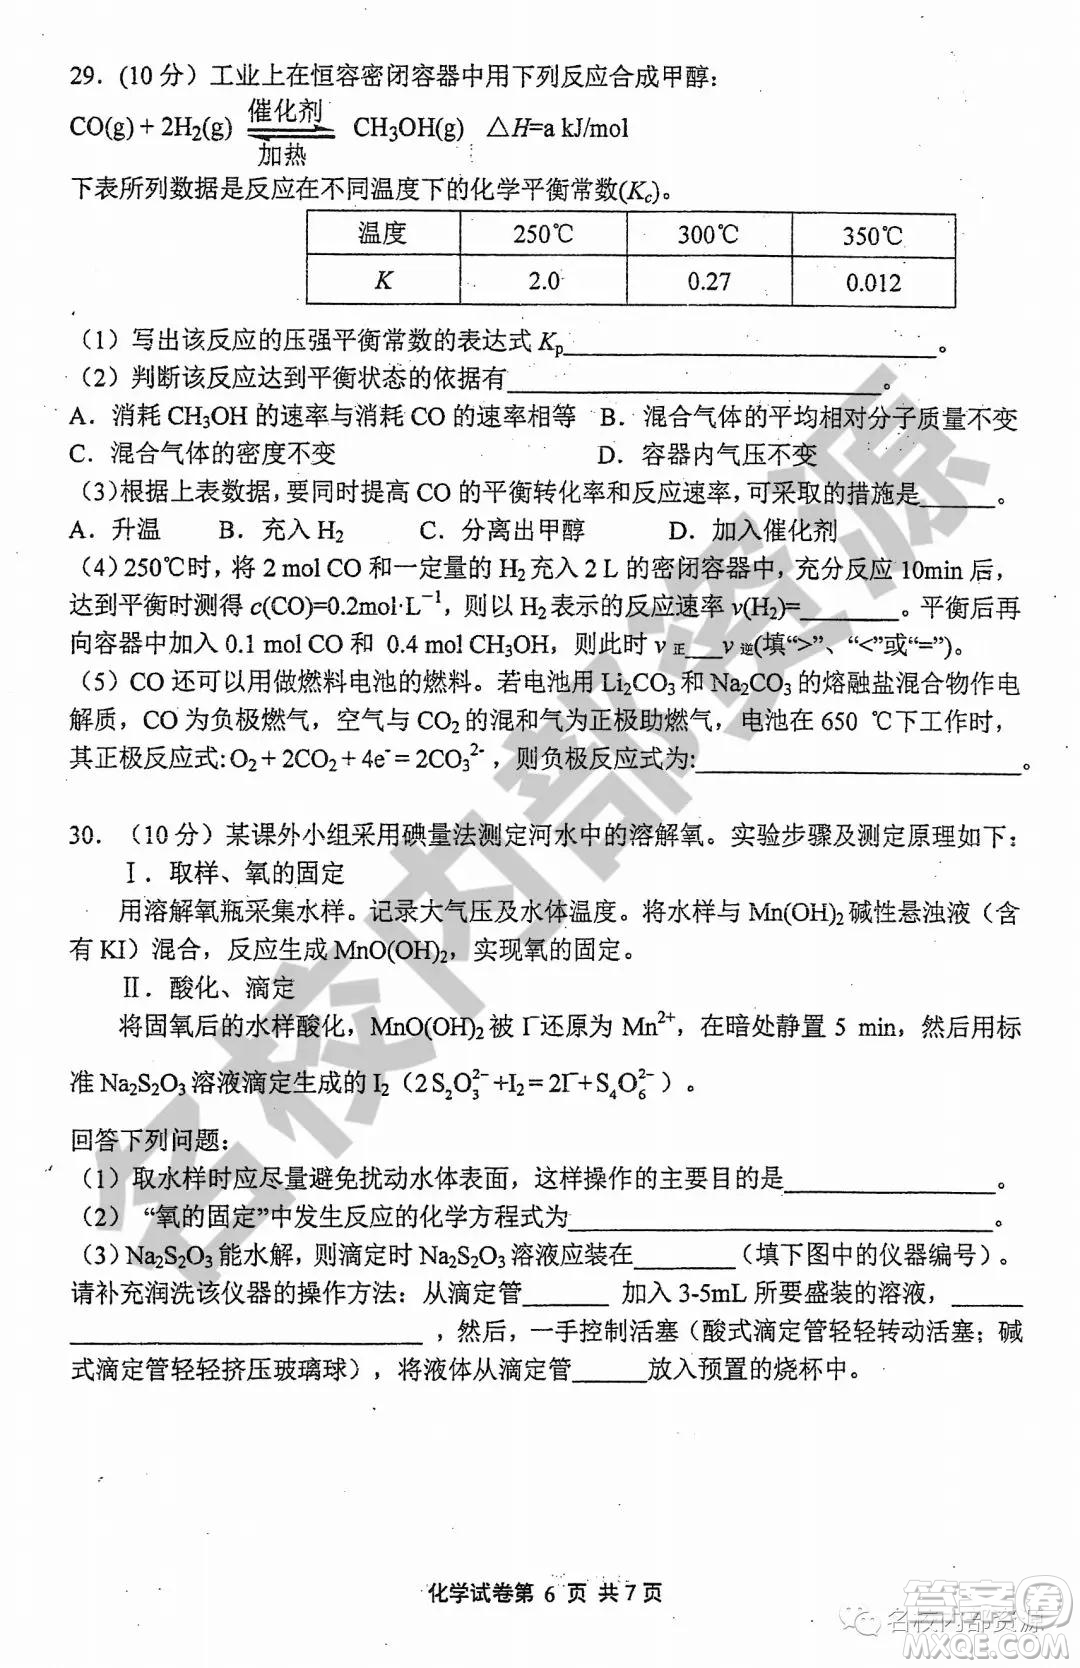 29．(10 分）工业上在恒容密闭容器中用下列反应合成甲醇：
催化剂
CO(g) + 2H₂(g) ⇌ CH₃OH(g) △H=a kJ/mol
加热
下表所列数据是反应在不同温度下的化学平衡常数(Kc)。
温度 250℃ 300℃ 350℃
K 2.0 0.27 0.012
（1）写出该反应的压强平衡常数的表达式 Kp______________。
（2）判断该反应达到平衡状态的依据有______________。
A．消耗 CH₃OH 的速率与消耗 CO 的速率相等 B．混合气体的平均相对分子质量不变
C．混合气体的密度不变 D．容器内气压不变
（3)根据上表数据，要同时提高 CO 的平衡转化率和反应速率，可采取的措施是______。
A．升温 B．充入 H₂ C．分离出甲醇 D．加入催化剂
（4）250℃时，将 2 mol CO 和一定量的 H₂充入 2 L 的密闭容器中，充分反应 10min 后，
达到平衡时测得 c(CO)=0.2mol·L⁻¹，则以 H₂表示的反应速率 v(H₂)=________。平衡后再
向容器中加入 0.1 mol CO 和 0.4 mol CH₃OH，则此时 v 正___v 逆(填“>”、“<”或“=”)。
（5）CO 还可以用做燃料电池的燃料。若电池用 Li₂CO₃和 Na₂CO₃的熔融盐混合物作电
解质，CO 为负极燃气，空气与 CO₂的混和气为正极助燃气，电池在 650 ℃下工作时，
其正极反应式: O₂ + 2CO₂ + 4e⁻ = 2CO₃²⁻，则负极反应式为:______________。
30．（10 分）某课外小组采用碘量法测定河水中的溶解氧。实验步骤及测定原理如下：
Ⅰ．取样、氧的固定
用溶解氧瓶采集水样。记录大气压及水体温度。将水样与 Mn(OH)₂碱性悬浊液（含
有 KI）混合，反应生成 MnO(OH)₂，实现氧的固定。
Ⅱ．酸化、滴定
将固氧后的水样酸化，MnO(OH)₂被 I⁻还原为 Mn²⁺，在暗处静置 5 min，然后用标
准 Na₂S₂O₃溶液滴定生成的 I₂（2 S₂O₃²⁻+I₂ = 2I⁻+ S₄O₆²⁻）。
回答下列问题：
（1）取水样时应尽量避免扰动水体表面，这样操作的主要目的是______________。
（2）“氧的固定”中发生反应的化学方程式为______________。
（3）Na₂S₂O₃能水解，则滴定时 Na₂S₂O₃溶液应装在________（填下图中的仪器编号）。
请补充润洗该仪器的操作方法：从滴定管_______ 加入 3-5mL 所要盛装的溶液，______
______________，然后，一手控制活塞（酸式滴定管轻轻转动活塞；碱
式滴定管轻轻挤压玻璃球），将液体从滴定管______放入预置的烧杯中。
化学试卷第 6 页 共 7 页
名校内部资源
名校内部资源
答案圈
MXQE.COM